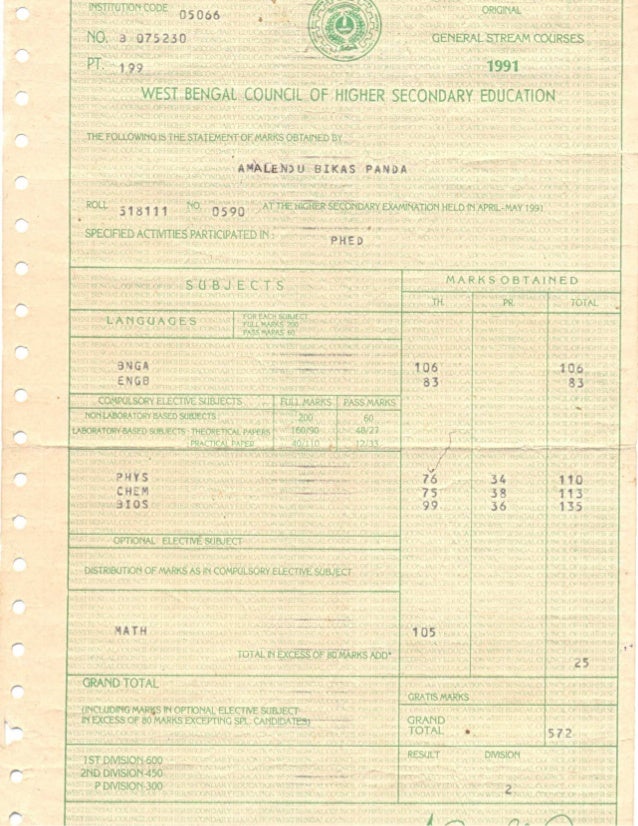 INSTITUTION CODE 05066 ORIGINAL
NO. B 075230 GENERAL STREAM COURSES
PT. 199 1991
WEST BENGAL COUNCIL OF HIGHER SECONDARY EDUCATION
THE FOLLOWING IS THE STATEMENT OF MARKS OBTAINED BY
AMALENDU BIKAS PANDA
ROLL 318111 NO. 0590 AT THE HIGHER SECONDARY EXAMINATION HELD IN APRIL-MAY 1991
SPECIFIED ACTIVITIES PARTICIPATED IN : PHED
SUBJECTS MARKS OBTAINED
TH. PR. TOTAL
LANGUAGES FOR EACH SUBJECT
FULL MARKS 200
PASS MARKS 60
BNGA 106 106
ENGB 83 83
COMPULSORY ELECTIVE SUBJECTS FULL MARKS PASS MARKS
NON LABORATORY BASED SUBJECTS 200 60
LABORATORY-BASED SUBJECTS - THEORETICAL PAPERS 160/90 48/27
PRACTICAL PAPER 40/110 12/33
PHYS 76 34 110
CHEM 75 38 113
BIOS 99 36 135
OPTIONAL ELECTIVE SUBJECT
DISTRIBUTION OF MARKS AS IN COMPULSORY ELECTIVE SUBJECT
MATH 105
TOTAL IN EXCESS OF 80 MARKS ADD*
25
GRAND TOTAL
GRATIS MARKS
(INCLUDING MARKS IN OPTIONAL ELECTIVE SUBJECT
IN EXCESS OF 80 MARKS EXCEPTING SPL. CANDIDATES)
GRAND TOTAL 572
1ST DIVISION-600 RESULT DIVISION
2ND DIVISION-450
P DIVISION-300 2